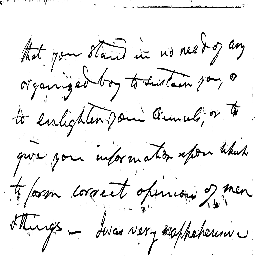 that you stand in no need of any
organized boy to sustain you, or
to enlighten your Council, or to
give you information upon which
to form correct opinions of men
& things — I was very apprehensive